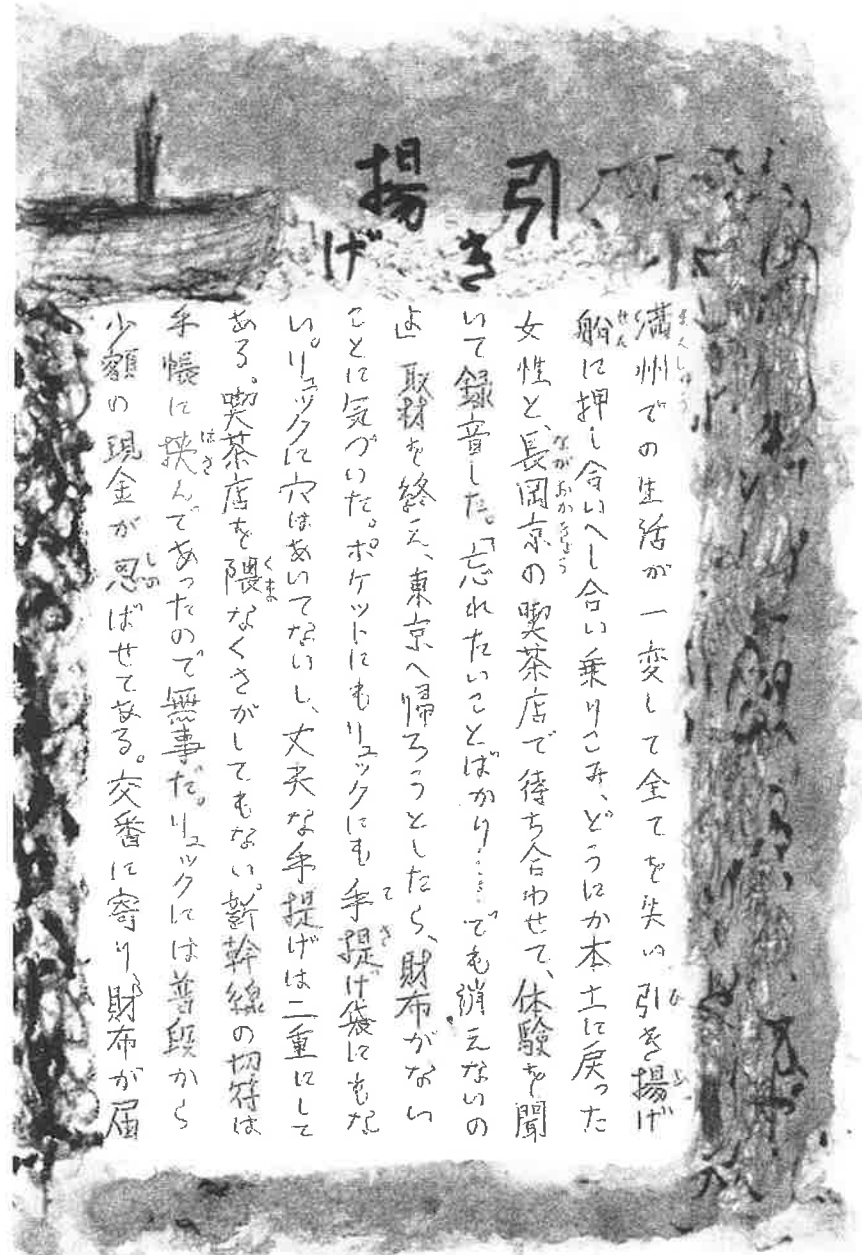 引き揚げ
満州での生活が一変して全てを失い引き揚げ
船に押し合いへし合い乗りこみ、どうにか本土に戻った
女性と、長岡京の喫茶店で待ち合わせて、体験を聞
いて録音した。「忘れたいことばかり……でも消えないの
よ」取材を終え、東京へ帰ろうとしたら、財布がない
ことに気づいた。ポケットにもリュックにも手提げ袋にもな
い。リュックに穴はあいてないし、丈夫な手提げは二重にして
ある。喫茶店を隈なくさがしてもない。新幹線の切符は
手帳に挟んであったので無事だ。リュックには普段から
少額の現金が忍ばせてある。交番に寄り、財布が届